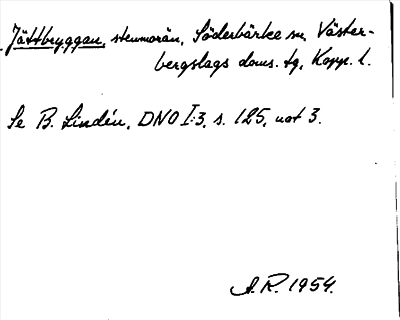 Jättbryggan, stenmorän, Söderbärke sn, Väster-
bergslags doms. tg, Kopp. l.
Se B. Lindén, DNO I:3, s. 125, not 3.
A.R. 1954.